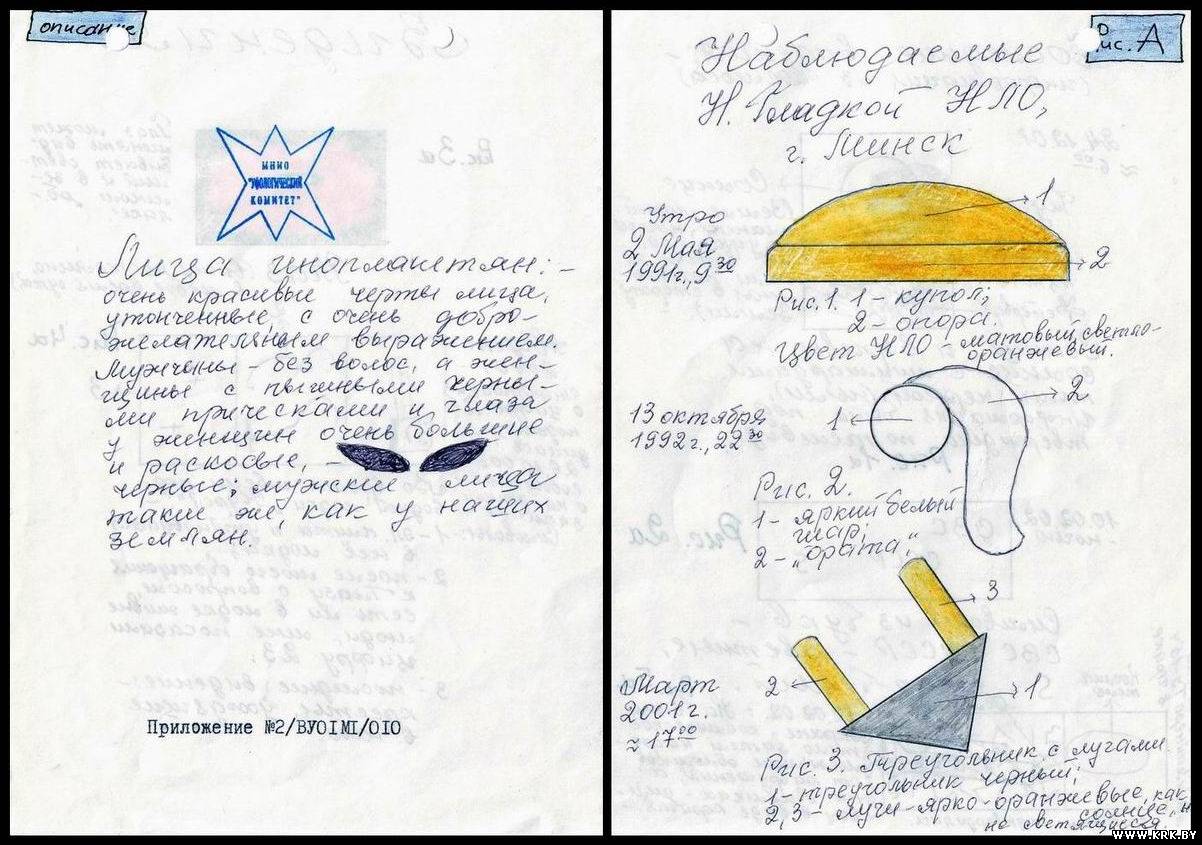 описание
МНИО
"УФОЛОГИЧЕСКИЙ
КОМИТЕТ"
Лица инопланетян: -
очень красивые черты лица,
утонченные, с очень добро-
желательным выражением.
Мужчины - без волос, а жен-
щины с пышными черны-
ми прическами и глаза
у женщин очень большие
и раскосые, -
черные; мужские лица
такие же, как у наших
землян.
Приложение №2/ВУ01М1/010
Рис. А
Наблюдаемые
Н. Гладкой НЛО,
г. Минск
Утро
2 Мая
1991г., 9 30
1
2
Рис. 1. 1 - купол;
2 - опора.
Цвет НЛО - матовый, светло-
оранжевый.
13 октября
1992г., 22 30
1
2
Рис. 2.
1 - яркий белый
шар;
2 -
Март
2001г.
≈ 17 00
3
2
1
Рис. 3. Треугольник с лучами
1 - треугольник черный;
2, 3 - лучи - ярко-оранжевые, как
солнце, н
но светящиеся.
WWW.KRK.BY